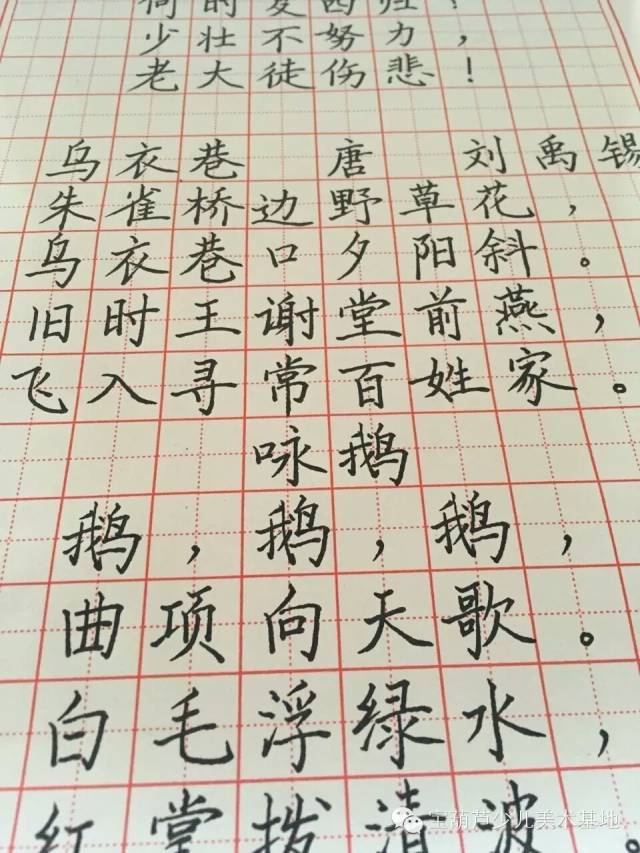 何时复西归？
少壮不努力，
老大徒伤悲！
乌衣巷 唐 刘禹锡
朱雀桥边野草花，
乌衣巷口夕阳斜。
旧时王谢堂前燕，
飞入寻常百姓家。
咏鹅
鹅，鹅，鹅，
曲项向天歌。
白毛浮绿水，
红掌拨清波。
宝葫芦少儿美术基地